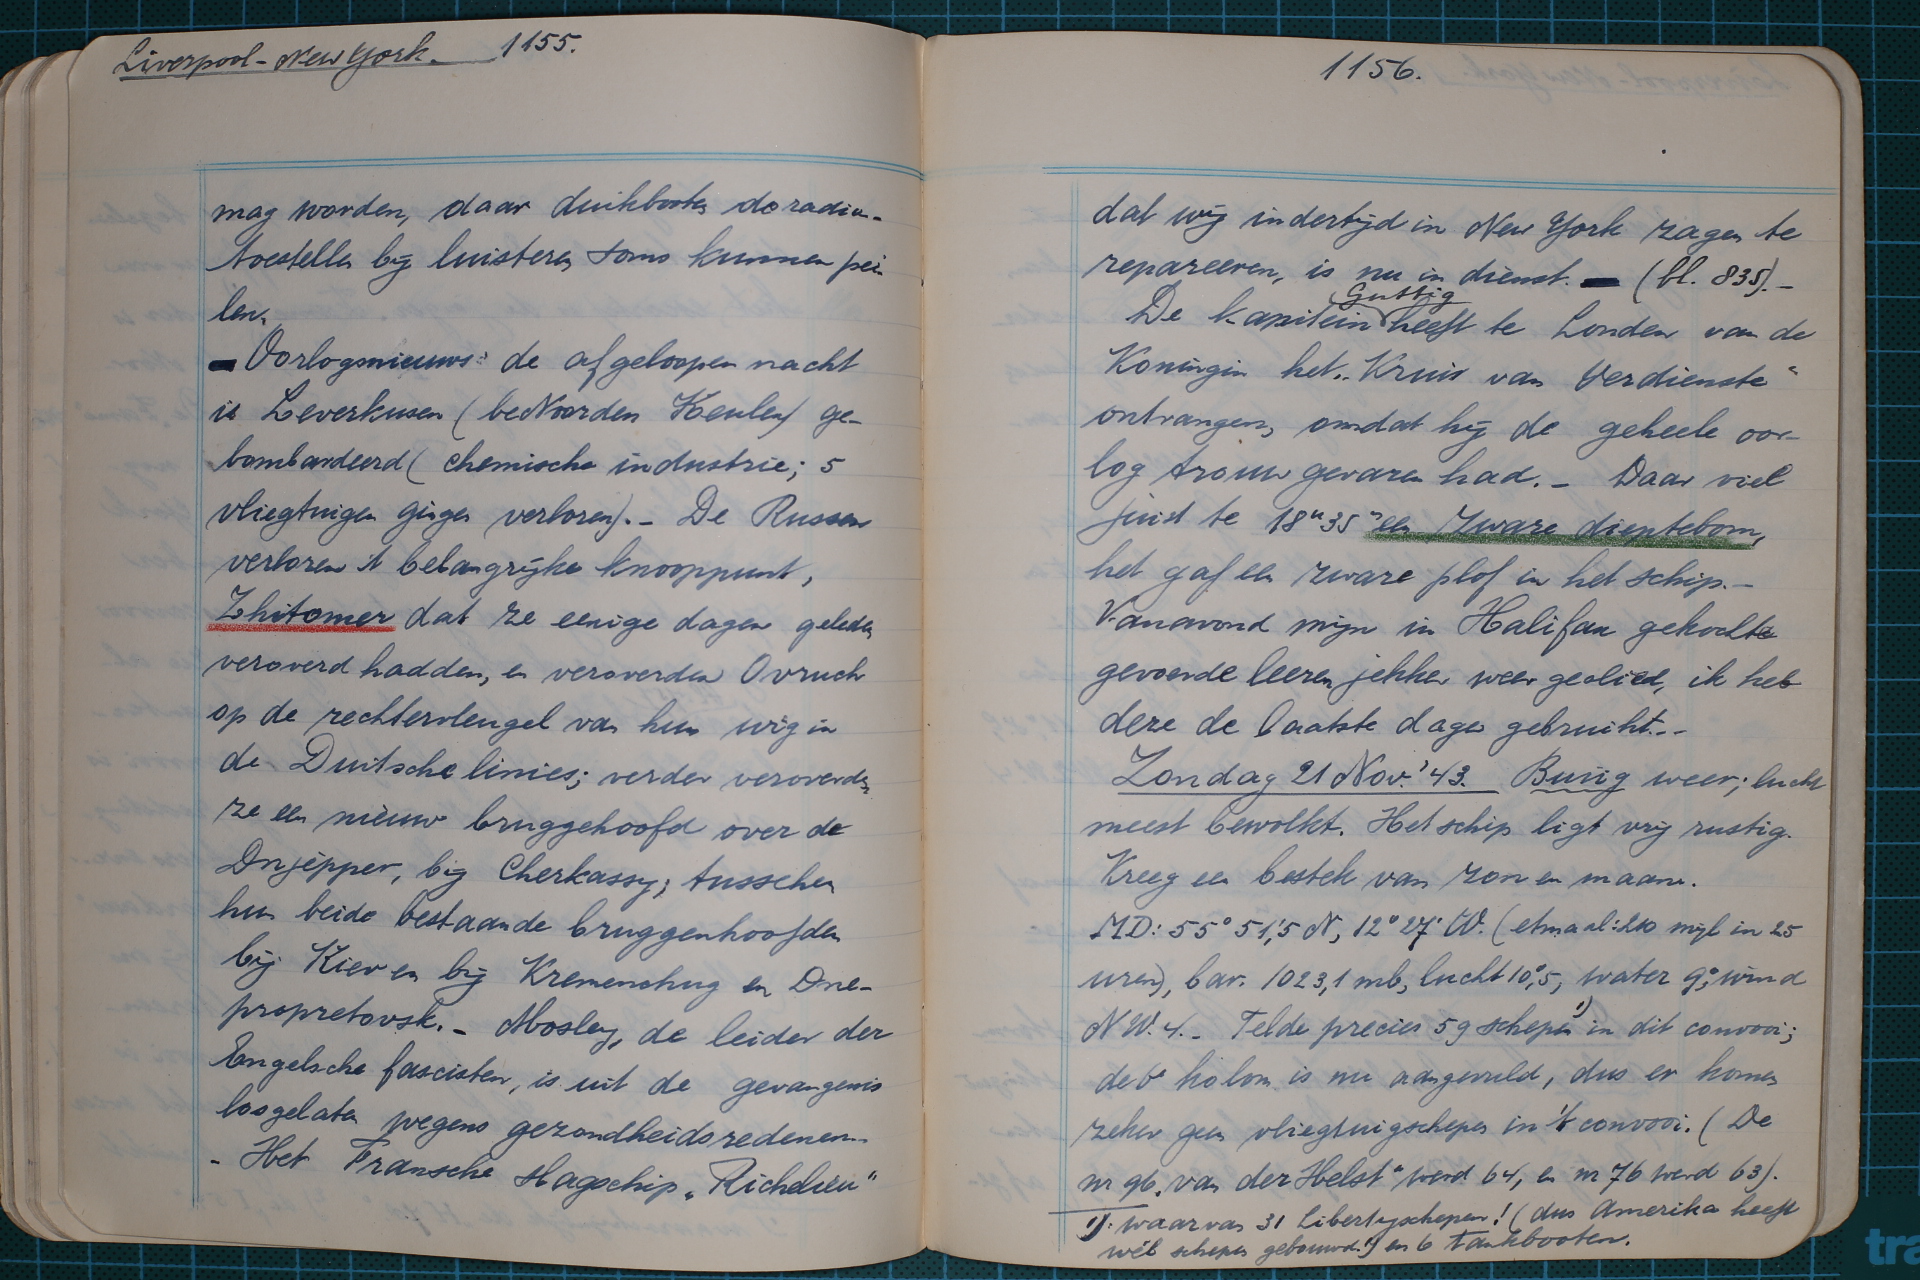 Liverpool - New York. 1155.
mag worden, daar duikbooten de radio-
toestellen bij luisteren soms kunnen pei-
len.
- Oorlogsnieuws: de afgeloopen nacht
is Leverkusen (beNoorden Keulen) ge-
bombardeerd (chemische industrie; 5
vliegtuigen gingen verloren). - De Russen
verloren 't belangrijke knooppunt,
Zhitomer dat ze eenige dagen geleden
veroverd hadden, en veroverden Ovruch
op de rechtervleugel van hun wig in
de Duitsche linies; verder veroverden
ze een nieuw bruggehoofd over de
Dnjepper, bij Cherkassy; tusschen
hun beide bestaande bruggenhoofden
bij Kiev en bij Kremenchug en Dne-
propretovsk. - Mosley, de leider der
Engelsche fascisten, is uit de gevangenis
losgelaten wegens gezondheidsredenen. -
- Het Fransche slagschip „Richelieu"
1156.
dat wij indertijd in New York zagen te
repareeren, is nu in dienst. - (bl. 835). -
De kapitein Guttig heeft te Londen van de
Koningin het „Kruis van Verdienste"
ontvangen, omdat hij de geheele oor-
log trouw gevaren had. - Daar viel
juist te 18u 35m een zware dieptebom,
het gaf een zware plof in het schip. -
Vanavond mijn in Halifax gekochte
gevoerde leeren jekker weer geolied, ik heb
deze de laatste dagen gebruikt. -
Zondag 21 Nov. '43. Buiig weer; lucht
meest bewolkt. Het schip ligt vrij rustig.
Kreeg een bestek van zon en maan.
MD: 55° 51,'5 N, 12° 27' W. (etmaal: 210 mijl in 25
uren), bar. 1023,1 mb, lucht 10°,5, water 9°; wind
N.W. 4. - Telde precies 59 schepen 1) in dit convooi;
de 6e kolom is nu aangevuld, dus er komen
zeker geen vliegtuigschepen in 't convooi. (De
nr 96 „van der Helst" werd 64, en nr 76 werd 63).
1). waarvan 31 Libertyschepen! (dus Amerika heeft
wél schepen gebouwd!) en 6 tankbooten.